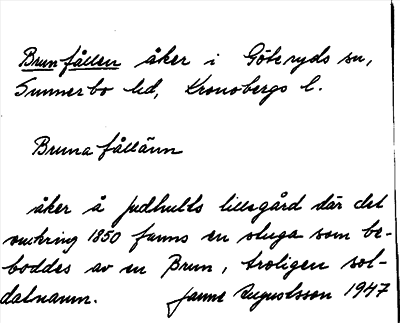 Brunfållen åker i Göteryds sn,
Sunnerbo hd, Kronobergs l.
Bruna fållänn
åker å Judhults lillegård där det
omkring 1850 fanns en stuga som be-
boddes av en Brun, troligen sol-
datnamn. Janne Augustsson 1947